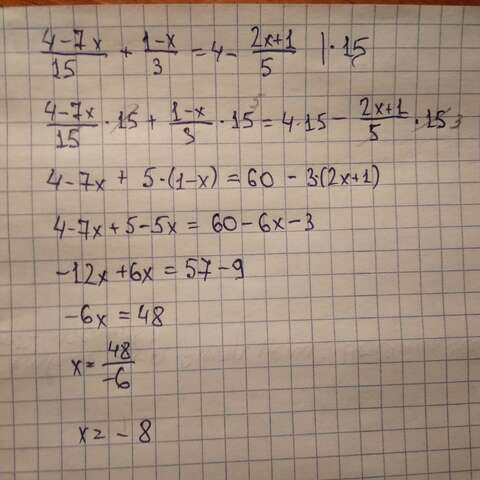 (4-7x)/15 + (1-x)/3 = 4 - (2x+1)/5 |·15
(4-7x)/15 · 15 + (1-x)/3 · 15 5 = 4·15 - (2x+1)/5 · 15 3
4-7x + 5·(1-x) = 60 - 3·(2x+1)
4-7x+5-5x = 60-6x-3
-12x+6x = 57-9
-6x = 48
x = 48/-6
x = -8